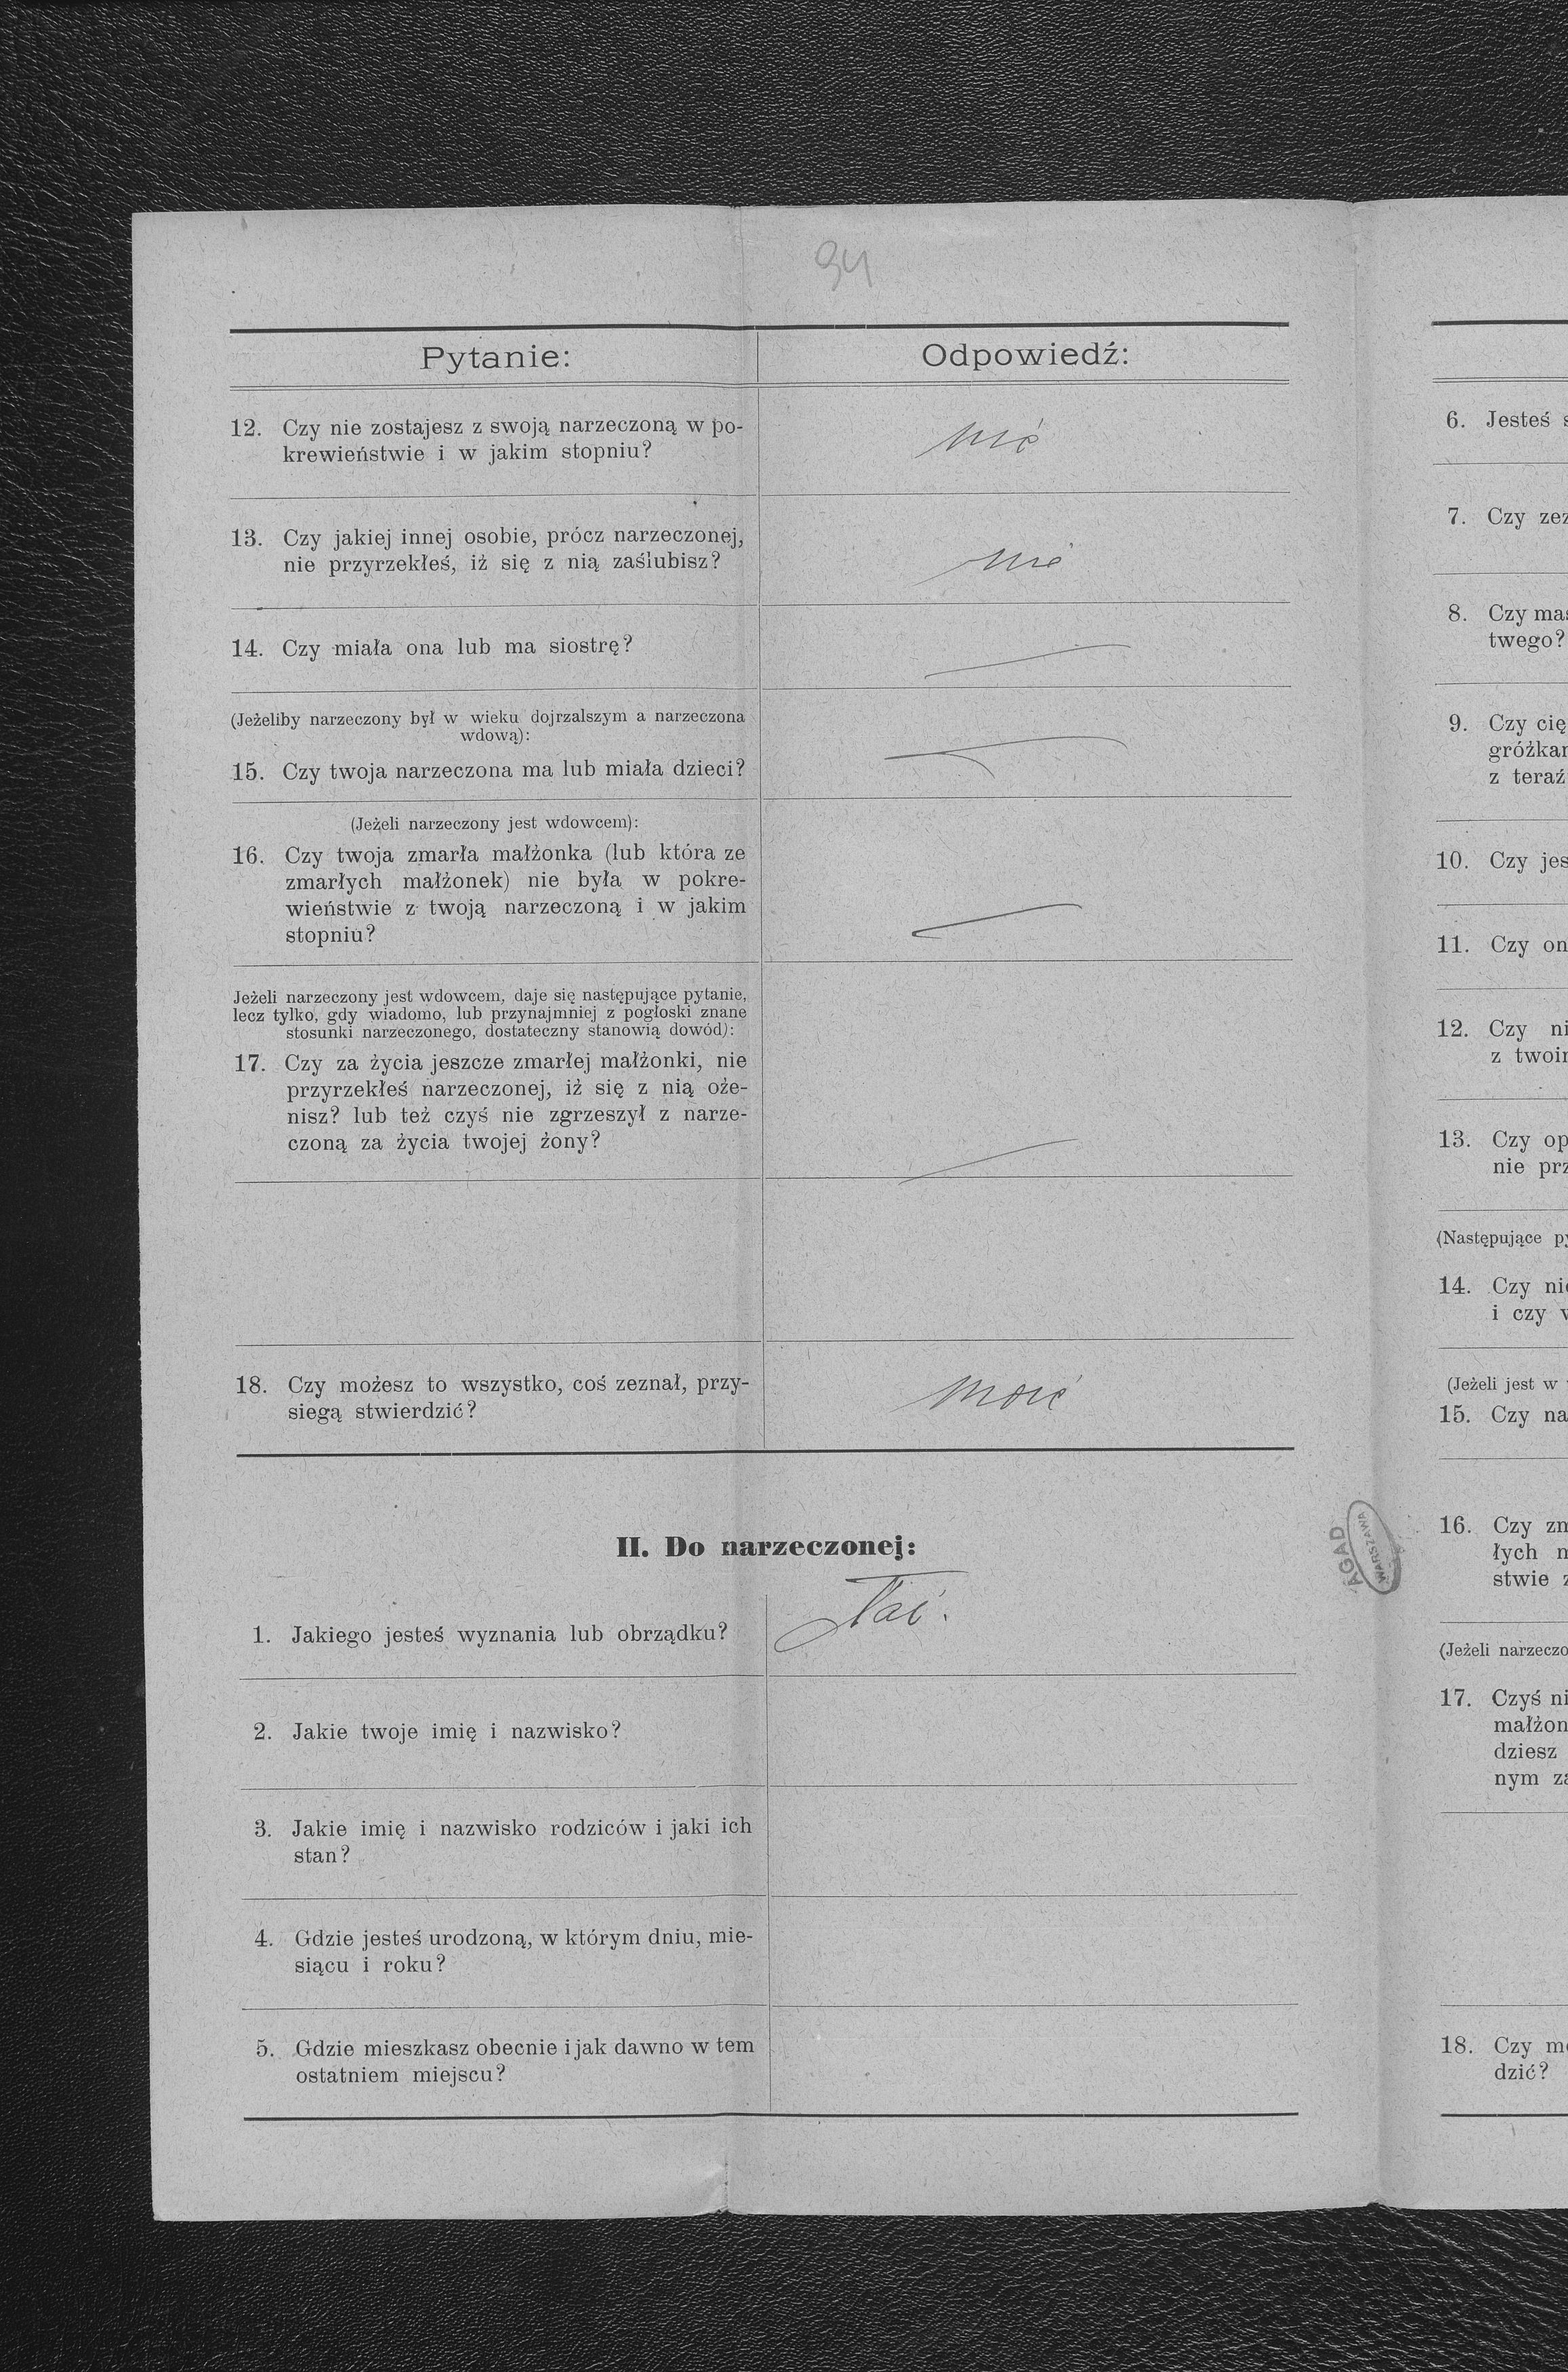 94
Pytanie:
Odpowiedź:
12. Czy nie zostajesz z swoją narzeczoną w po-
krewieństwie i w jakim stopniu?
nie
13. Czy jakiej innej osobie, prócz narzeczonej,
nie przyrzekłeś, iż się z nią zaślubisz?
nie
14. Czy miała ona lub ma siostrę?
(Jeżeliby narzeczony był w wieku dojrzalszym a narzeczona
wdową):
15. Czy twoja narzeczona ma lub miała dzieci?
(Jeżeli narzeczony jest wdowcem):
16. Czy twoja zmarła małżonka (lub która ze
zmarłych małżonek) nie była w pokre-
wieństwie z twoją narzeczoną i w jakim
stopniu?
Jeżeli narzeczony jest wdowcem, daje się następujące pytanie,
lecz tylko, gdy wiadomo, lub przynajmniej z pogłoski znane
stosunki narzeczonego, dostateczny stanowią dowód):
17. Czy za życia jeszcze zmarłej małżonki, nie
przyrzekłeś narzeczonej, iż się z nią oże-
nisz? lub też czyś nie zgrzeszył z narze-
czoną za życia twojej żony?
18. Czy możesz to wszystko, coś zeznał, przy-
siegą stwierdzić?
II. Do narzeczonej:
1. Jakiego jesteś wyznania lub obrządku?
2. Jakie twoje imię i nazwisko?
3. Jakie imię i nazwisko rodziców i jaki ich
stan?
4. Gdzie jesteś urodzoną, w którym dniu, mie-
siącu i roku?
5. Gdzie mieszkasz obecnie i jak dawno w tem
ostatniem miejscu?
AGAD
WARSZAWA
6. Jesteś
7. Czy
8. Czy
twego?
9. Czy cię
z
10. Czy
11. Czy
12. Czy
z
13. Czy
nie
(Następujące
14. Czy
i czy
(Jeżeli jest w
15. Czy
16. Czy
łych
stwie
(Jeżeli
17. Czyś
dziesz
nym
18. Czy
dzić?